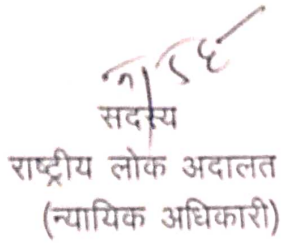 सदस्य
राष्ट्रीय लोक अदालत
(न्यायिक अधिकारी)